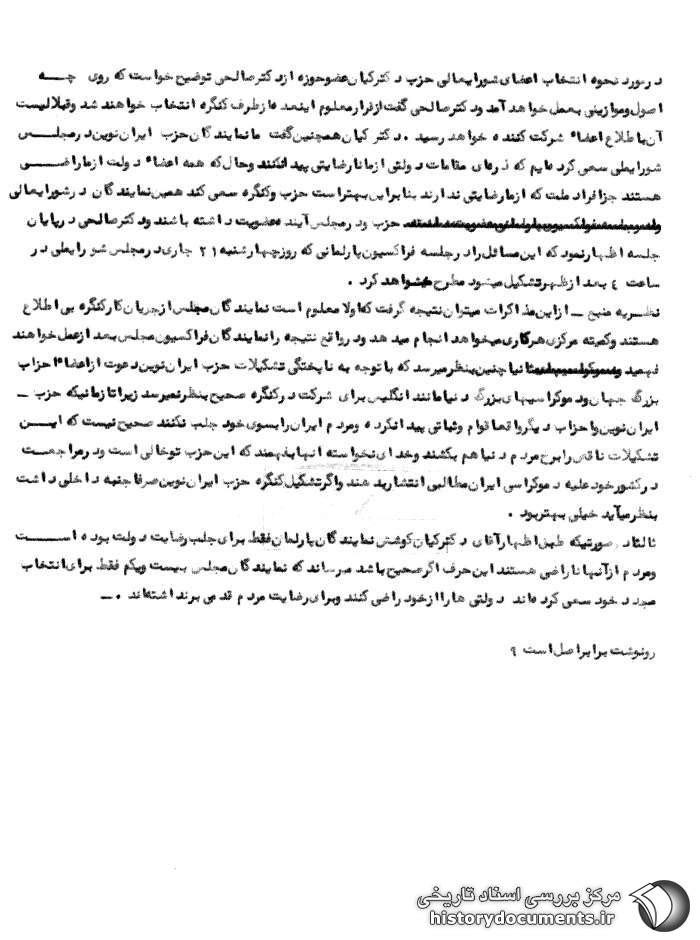 در مورد نحوه انتخاب اعضای شورایعالی حزب دکتر کیان عضو حوزه از دکتر صالحی توضیح خواست که روی چه
اصول و موازینی بعمل خواهد آمد ودکتر صالحی گفت از قرار معلوم اینعده از طرف کنگره انتخاب خواهند شد وقبلا لیست
آن باطلاع اعضاء شرکت کننده خواهد رسید . دکتر کیان همچنین گفت ما نمایندگان حزب ایران نوین در مجلس
شورایملی سعی کرده ایم که ذره‌ای مقامات دولتی از ما نارضایتی پیدا نکنند وحال که همه اعضاء دولت از ما راضی
هستند جز افراد ملت که از ما رضایتی ندارند بنابراین بهتر است حزب وکنگره سعی کند همین نمایندگان در شورایعالی
حزب ودر مجلس آینده عضویت داشته باشند ودکتر صالحی در پایان
جلسه اظهار نمود که این مسائل را در جلسه فراکسیون پارلمانی که روز چهارشنبه ۲۱ جاری در مجلس شورایملی در
ساعت ۴ بعد از ظهر تشکیل میشود مطرح خواهد کرد .
نظریه منبع ـ از این مذاکرات میتوان نتیجه گرفت که اولا معلوم است نمایندگان مجلس از جریان کار کنگره بی اطلاع
هستند وکمیته مرکزی هر کاری میخواهد انجام میدهد ودر واقع نتیجه را نمایندگان فراکسیون مجلس بعد از عمل خواهند
فهمید ثانیا چنین بنظر میرسد که با توجه به ناپختگی تشکیلات حزب ایران نوین دعوت از اعضاء احزاب
بزرگ جهان ودموکراسیهای بزرگ دنیا مانند انگلیس برای شرکت در کنگره صحیح بنظر نمیرسد زیرا تا زمانیکه حزب ـ
ایران نوین واحزاب دیگر واقعا قوام وثباتی پیدا نکرده ومردم ایران را بسوی خود جلب نکنند صحیح نیست که این
تشکیلات ناقص را برخ مردم دنیا هم بکشند وخدای نخواسته آنها بفهمند که این حزب توخالی است ودر مراجعت
در کشور خود علیه دموکراسی ایران مطالبی انتشار بدهند واگر تشکیل کنگره حزب ایران نوین صرفا جنبه داخلی داشت
بنظر میآید خیلی بهتر بود .
ثالثا در صورتیکه طبق اظهار آقای دکتر کیان کوشش نمایندگان پارلمان فقط برای جلب رضایت دولت بوده است
ومردم از آنها ناراضی هستند این حرف اگر صحیح باشد میرساند که نمایندگان مجلس بیست ویکم فقط برای انتخاب
مجدد خود سعی کرده‌اند دولتی ها را از خود راضی کنند وبرای رضایت مردم قدمی برنداشته‌اند . ـ
رونوشت برابر اصل است ۹
مرکز بررسی اسناد تاریخی
historydocuments.ir